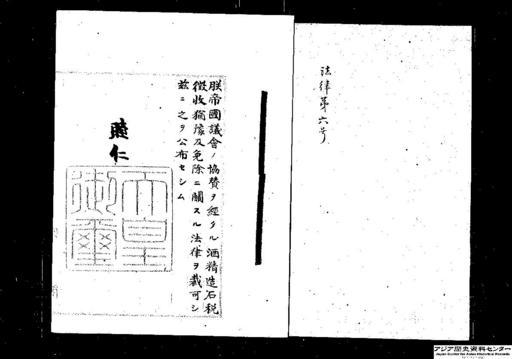 法律第六号
朕帝國議會ノ協賛ヲ經タル酒精造石税
徴收猶豫及免除ニ關スル法律ヲ裁可シ
茲ニ之ヲ公布セシム
睦仁
天皇御璽
アジア歴史資料センター
Japan Center for Asian Historical Records